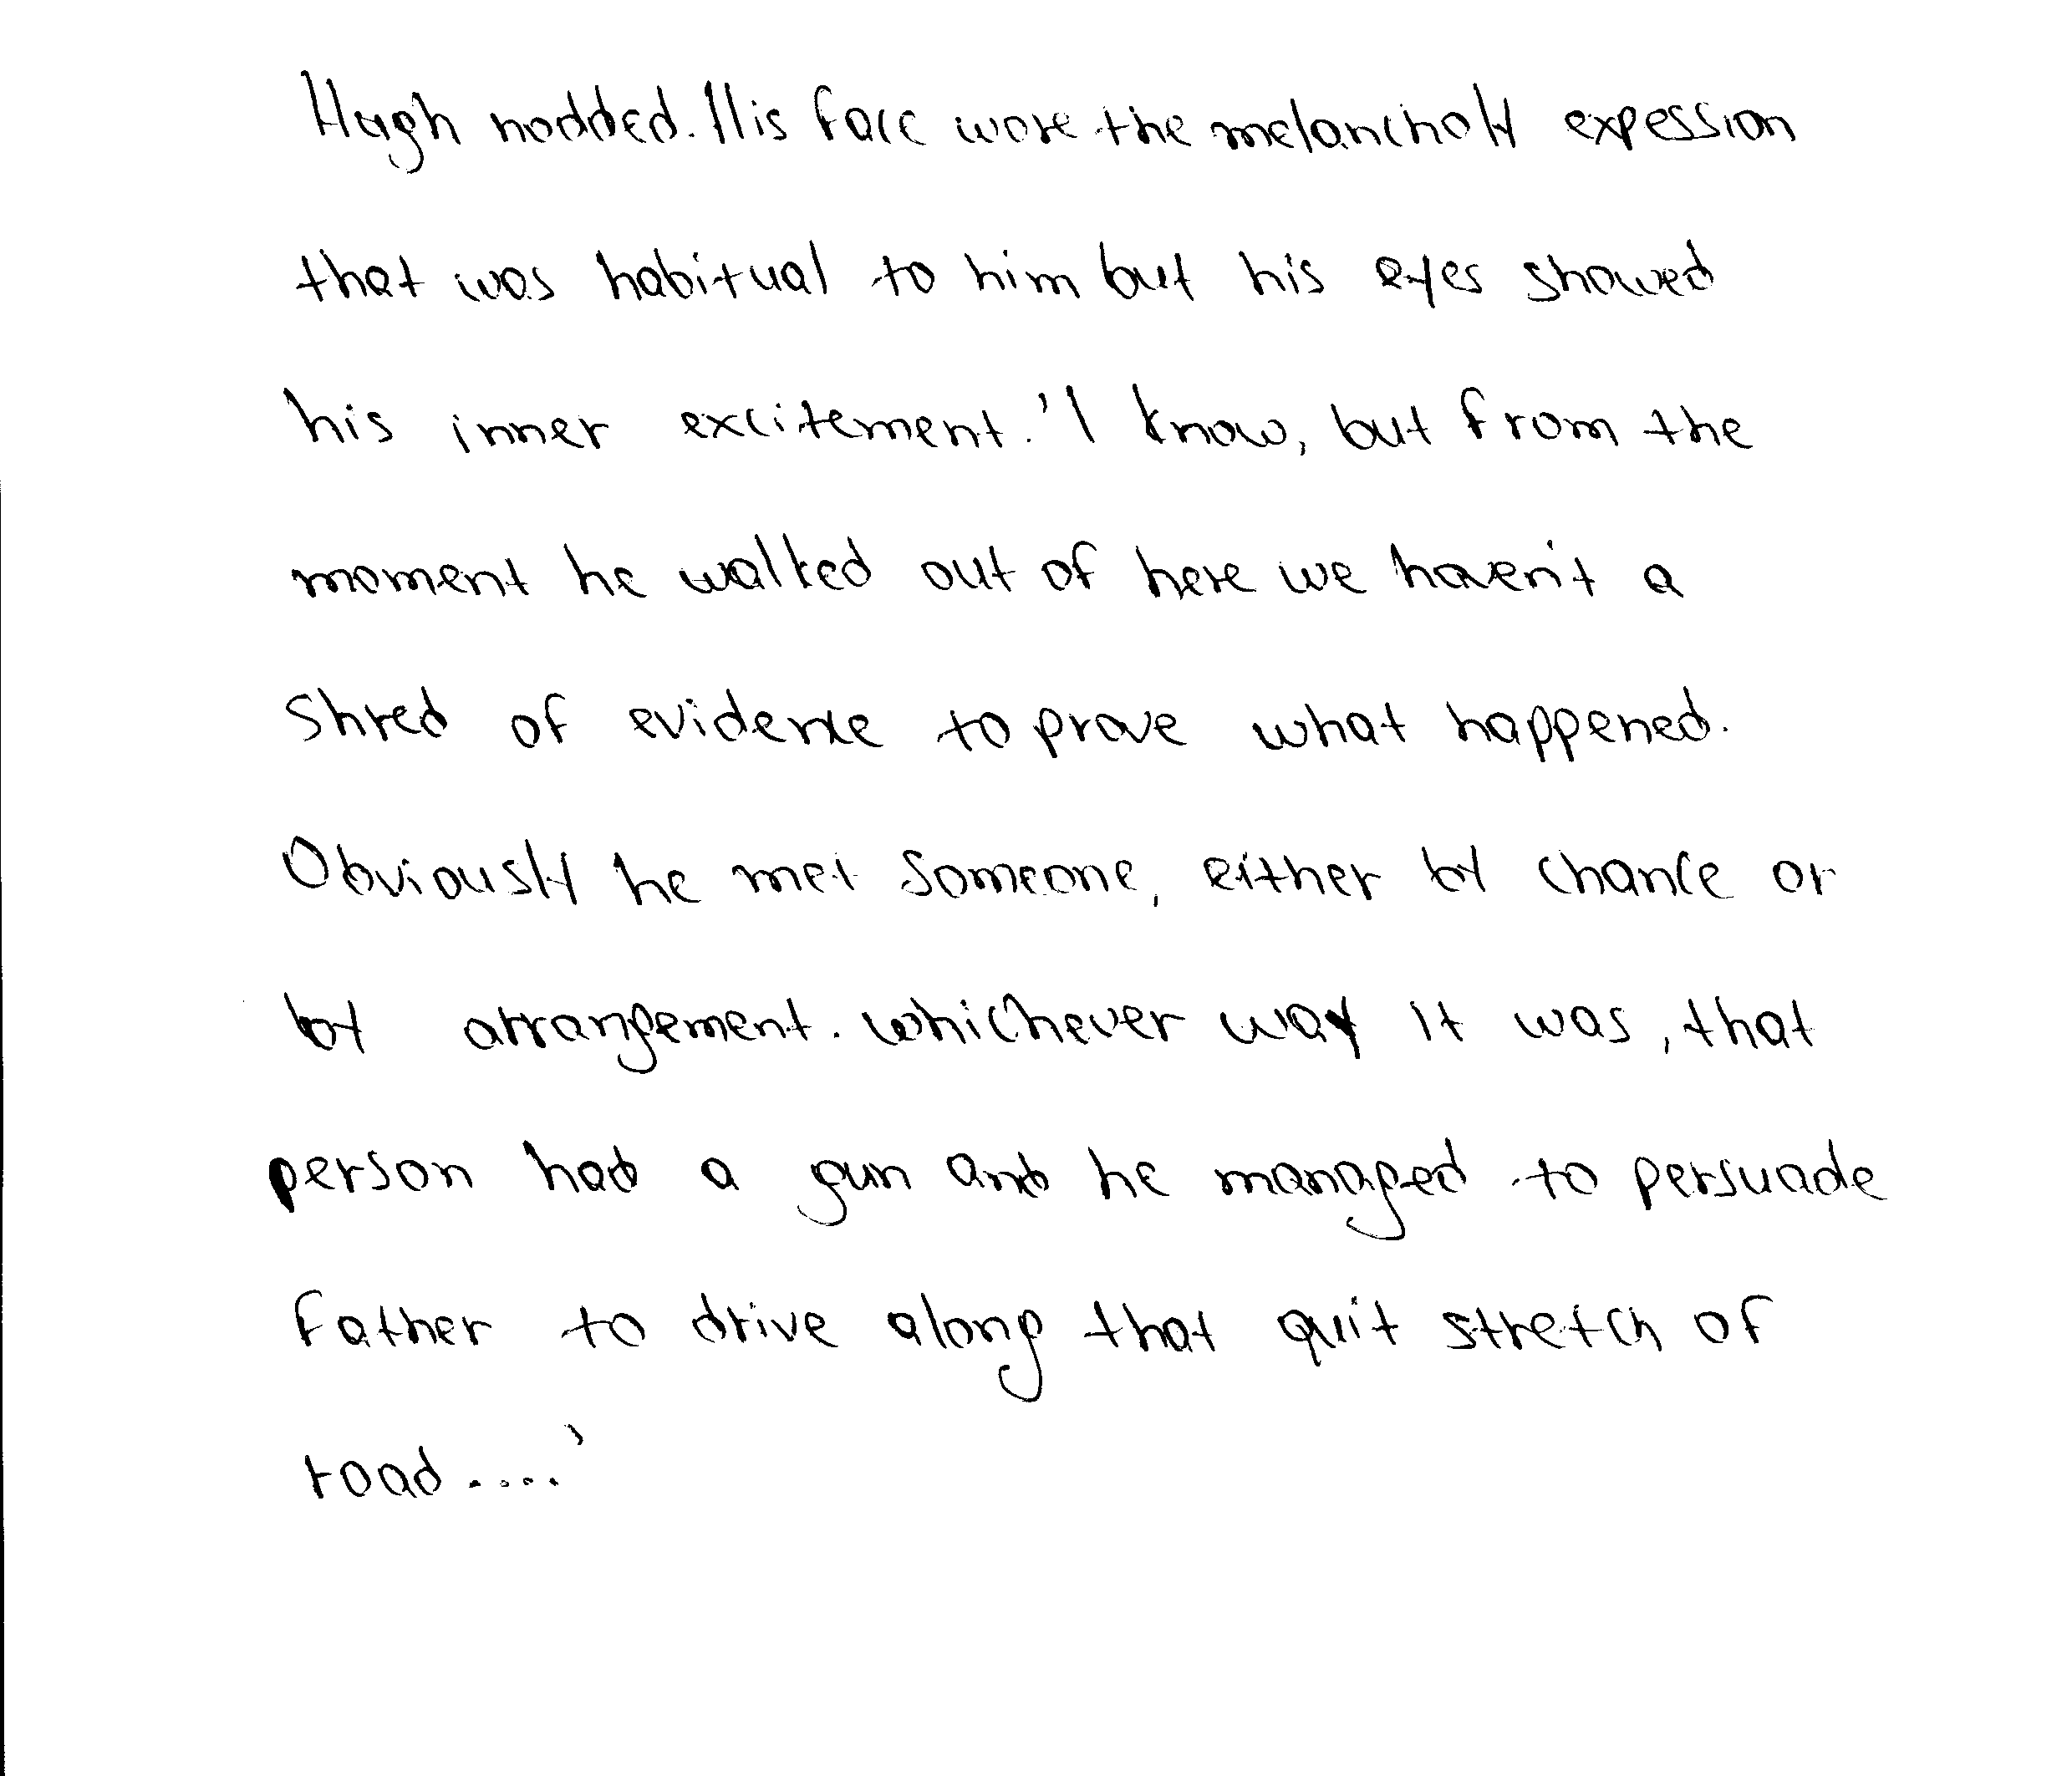 Hugh nodded. His face wore the melancholy expession
that was habitual to him but his eyes showed
his inner excitement. 'I know, but from the
moment he walked out of here we haven't a
shred of evidence to prove what happened.
Obviously he met someone, either by chance or
by arrangement. whichever way it was, that
person had a gun and he managed to persuade
father to drive along that quit stretch of
road ....'